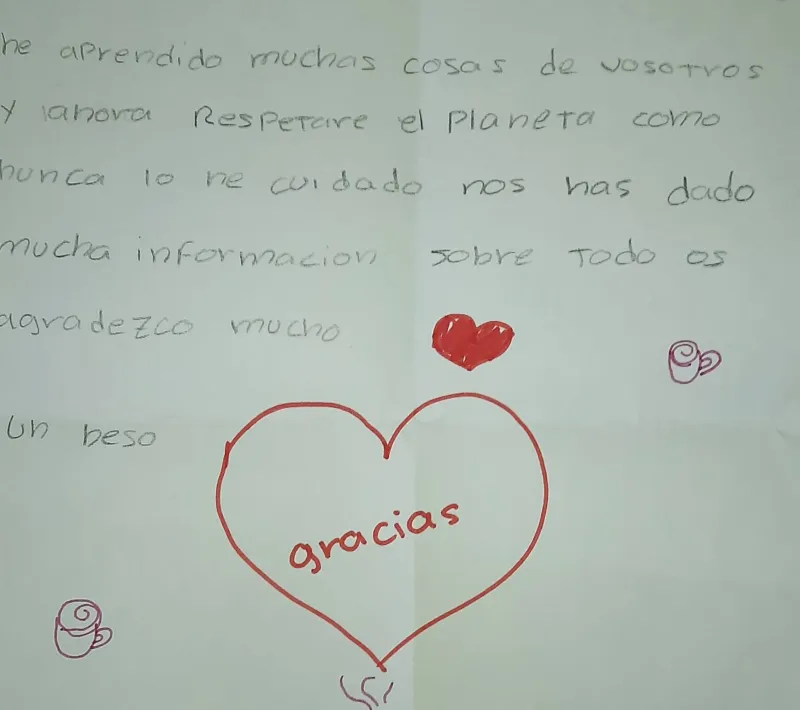 he aprendido muchas cosas de vosotros
y ahora Respetare el planeta como
nunca lo he cuidado nos has dado
mucha informacion sobre todo os
agradezco mucho
un beso
gracias